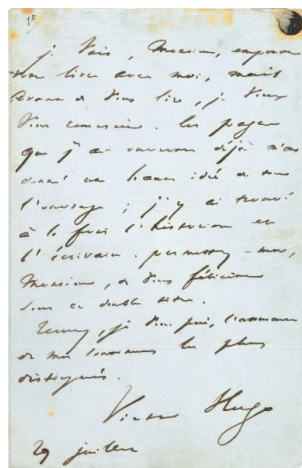 je vais, Monsieur, emporter
votre livre avec moi, mais
avant de vous lire, je veux
vous remercier. les pages
que j'ai parcourues déjà m'ont
donné une bonne idée de tout
l'ouvrage ; j'y ai trouvé
à la fois l'historien et
l'écrivain. permettez-moi,
Monsieur, de vous féliciter
sous ce double titre.
Recevez, je vous prie, l'assurance
de mes sentiments les plus
distingués.
Victor Hugo
29 juillet